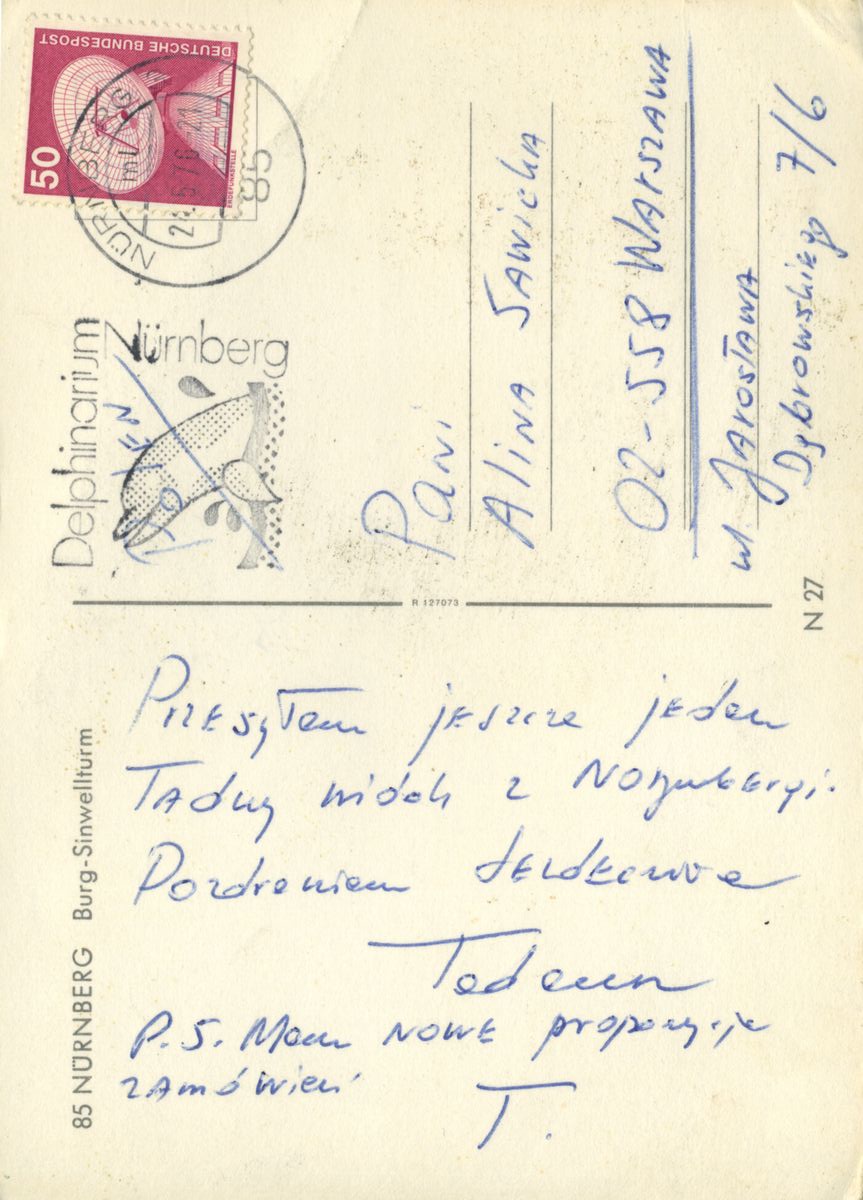 DEUTSCHE BUNDESPOST
50
ERDEFUNKSTELLE
NÜRNBERG
mt
-5.76-21
85
Delphinarium
Nürnberg
Pani
Alina Sawicka
02-558 Warszawa
ul. Jarosława
Dąbrowskiego 7/6
R 127073
N 27
85 NÜRNBERG Burg-Sinwellturm
Przesyłam jeszcze jeden
ładny widok z Norymbergi.
Pozdrawiam serdecznie
Tadeusz
P.S. Mam nowe propozycje
zamówień
T.